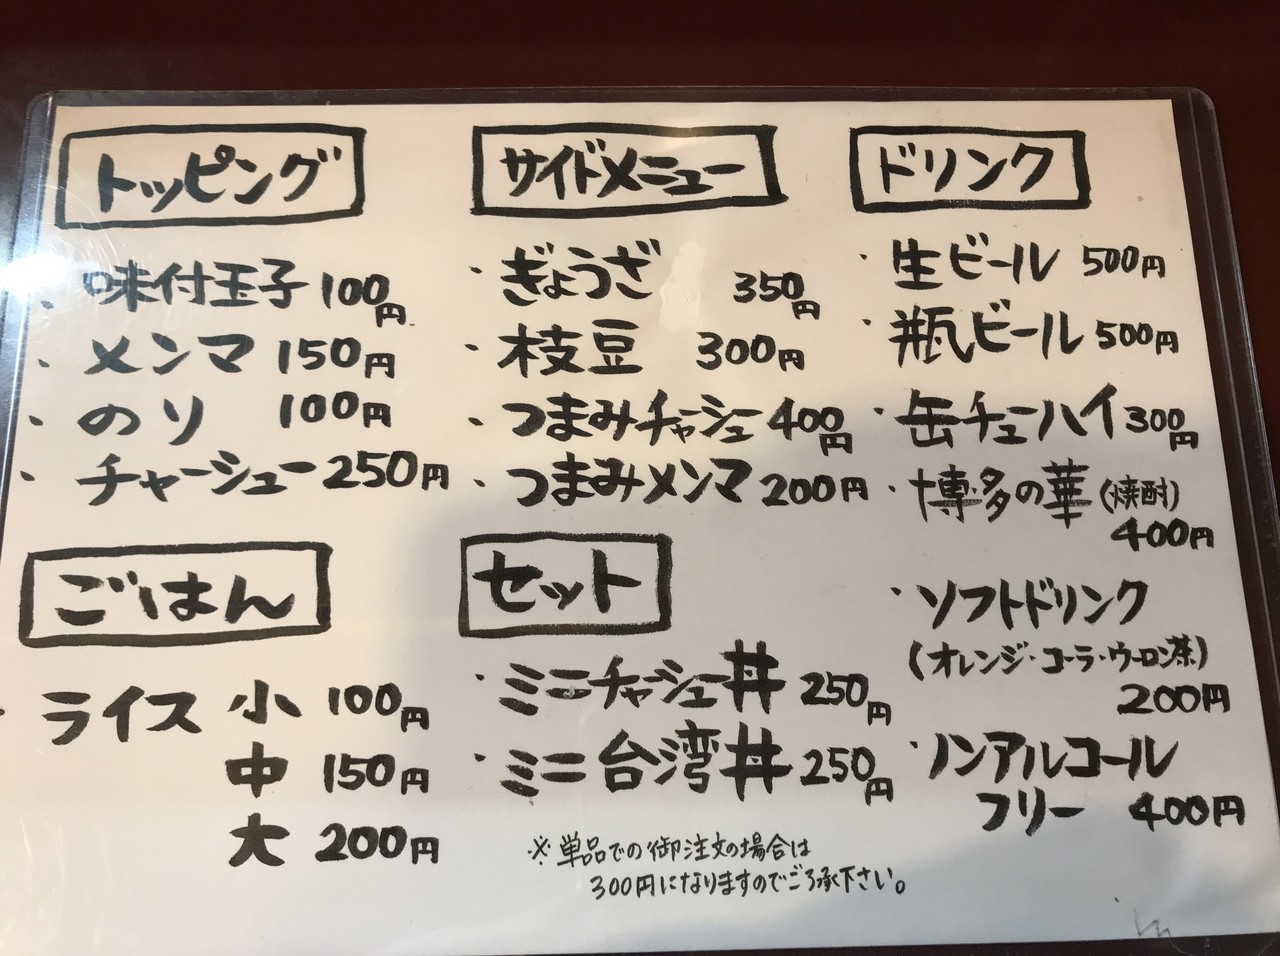 トッピング
・味付玉子 100円
・メンマ 150円
・のり 100円
・チャーシュー 250円
サイドメニュー
・ぎょうざ 350円
・枝豆 300円
・つまみチャーシュー 400円
・つまみメンマ 200円
ドリンク
・生ビール 500円
・瓶ビール 500円
・缶チューハイ 300円
・博多の華(焼酎)
400円
・ソフトドリンク
(オレンジ・コーラ・ウーロン茶)
200円
・ノンアルコール
フリー 400円
ごはん
・ライス 小 100円
中 150円
大 200円
セット
・ミニチャーシュー丼 250円
・ミニ台湾丼 250円
※単品での御注文の場合は
300円になりますのでご了承下さい。